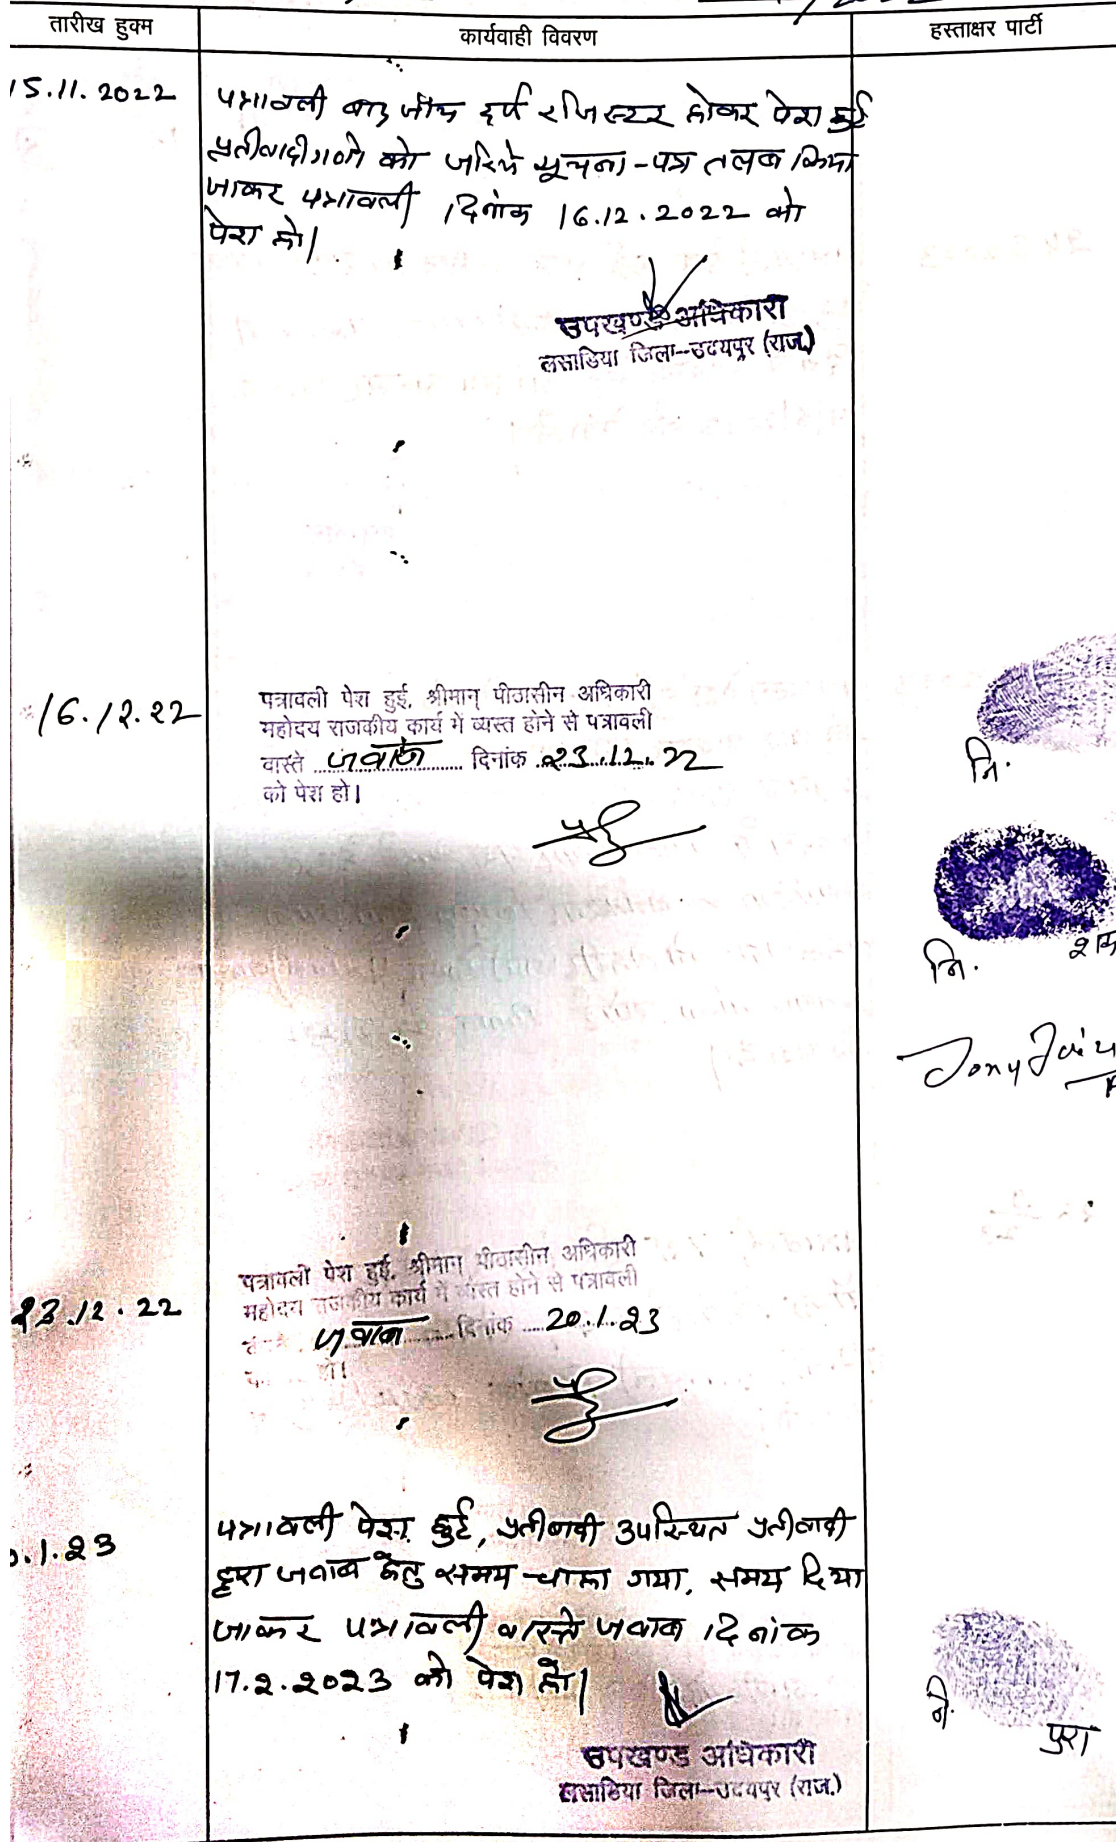 तारीख हुक्म
कार्यवाही विवरण
हस्ताक्षर पार्टी
15.11.2022
पत्रावली बाद जाँच दर्ज रजिस्टर होकर पेश हुई
प्रतीवादीगणो को जरिये सूचना-पत्र तलब किया
जाकर पत्रावली दिनांक 16.12.2022 को
पेश हो।
उपखण्ड अधिकारी
लसाडिया जिला-उदयपुर (राज.)
16.12.22
पत्रावली पेश हुई, श्रीमान् पीठासीन अधिकारी
महोदय राजकीय कार्य में व्यस्त होने से पत्रावली
वास्ते जवाब दिनांक 23.12.22
को पेश हो।
नि.
नि.
Tony
23.12.22
पत्रावली पेश हुई, श्रीमान् पीठासीन अधिकारी
महोदय राजकीय कार्य में व्यस्त होने से पत्रावली
जवाब दिनांक 20.1.23
.1.23
पत्रावली पेश हुई, प्रतीवादी उपस्थित प्रतीवादी
द्वारा जवाब हेतु समय चाहा गया, समय दिया
जाकर पत्रावली वास्ते जवाब दिनांक
17.2.2023 को पेश हो।
नि.
पुरा
उपखण्ड अधिकारी
लसाडिया जिला-उदयपुर (राज.)